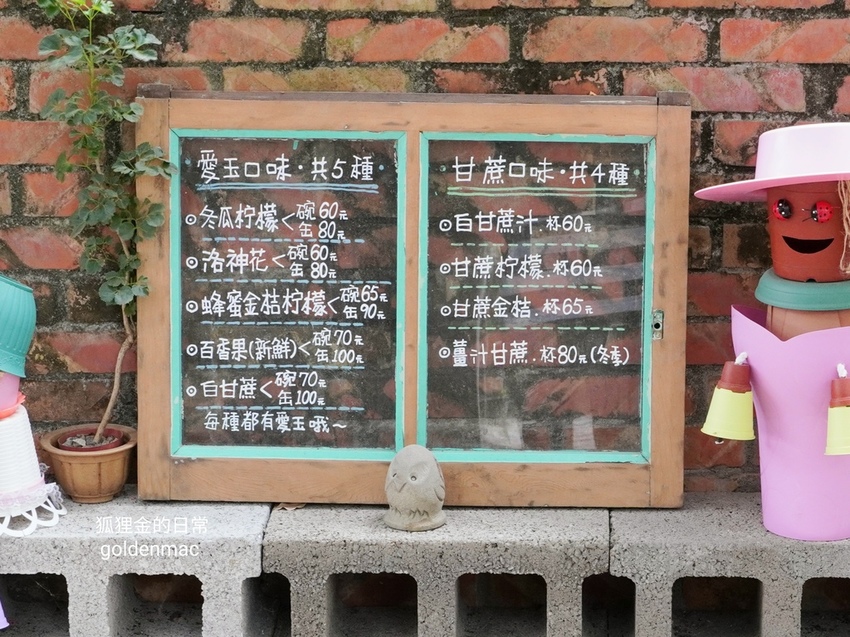 愛玉口味·共5種
冬瓜柠檬<碗60元
缶80元
洛神花<碗60元
缶80元
蜂蜜金桔柠檬<碗65元
缶90元
百香果(新鮮)<碗70元
缶100元
白甘蔗<碗70元
缶100元
每種都有愛玉哦~
甘蔗口味·共4種
白甘蔗汁.杯60元
甘蔗柠檬.杯60元
甘蔗金桔.杯65元
薑汁甘蔗.杯80元(冬季)
狐狸金的日常
goldenmac